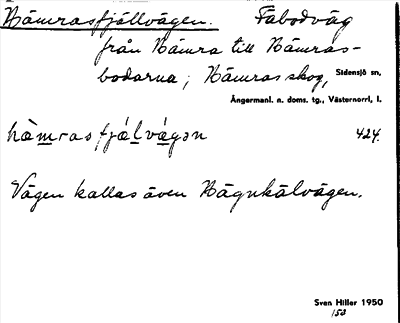 Hämrasfjällvägen. Fäbodväg
från Hämra till Hämras-
bodarna; Hämras skog, Sidensjö sn,
Ångermanl. n. doms. tg., Västernorrl. l.
hàmrasfjälvägən 424.
Vägen kallas även Hägnkälvägen.
Sven Hiller 1950